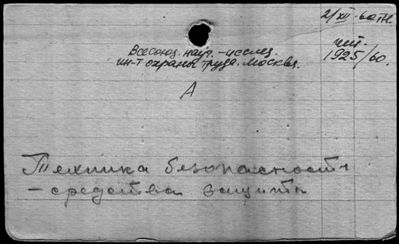 2/XII-60
Всесоюз. науч.-исслед.
ин-т охраны труда. Москва.
1925/60.
А
Техника безопасности
- средства защиты